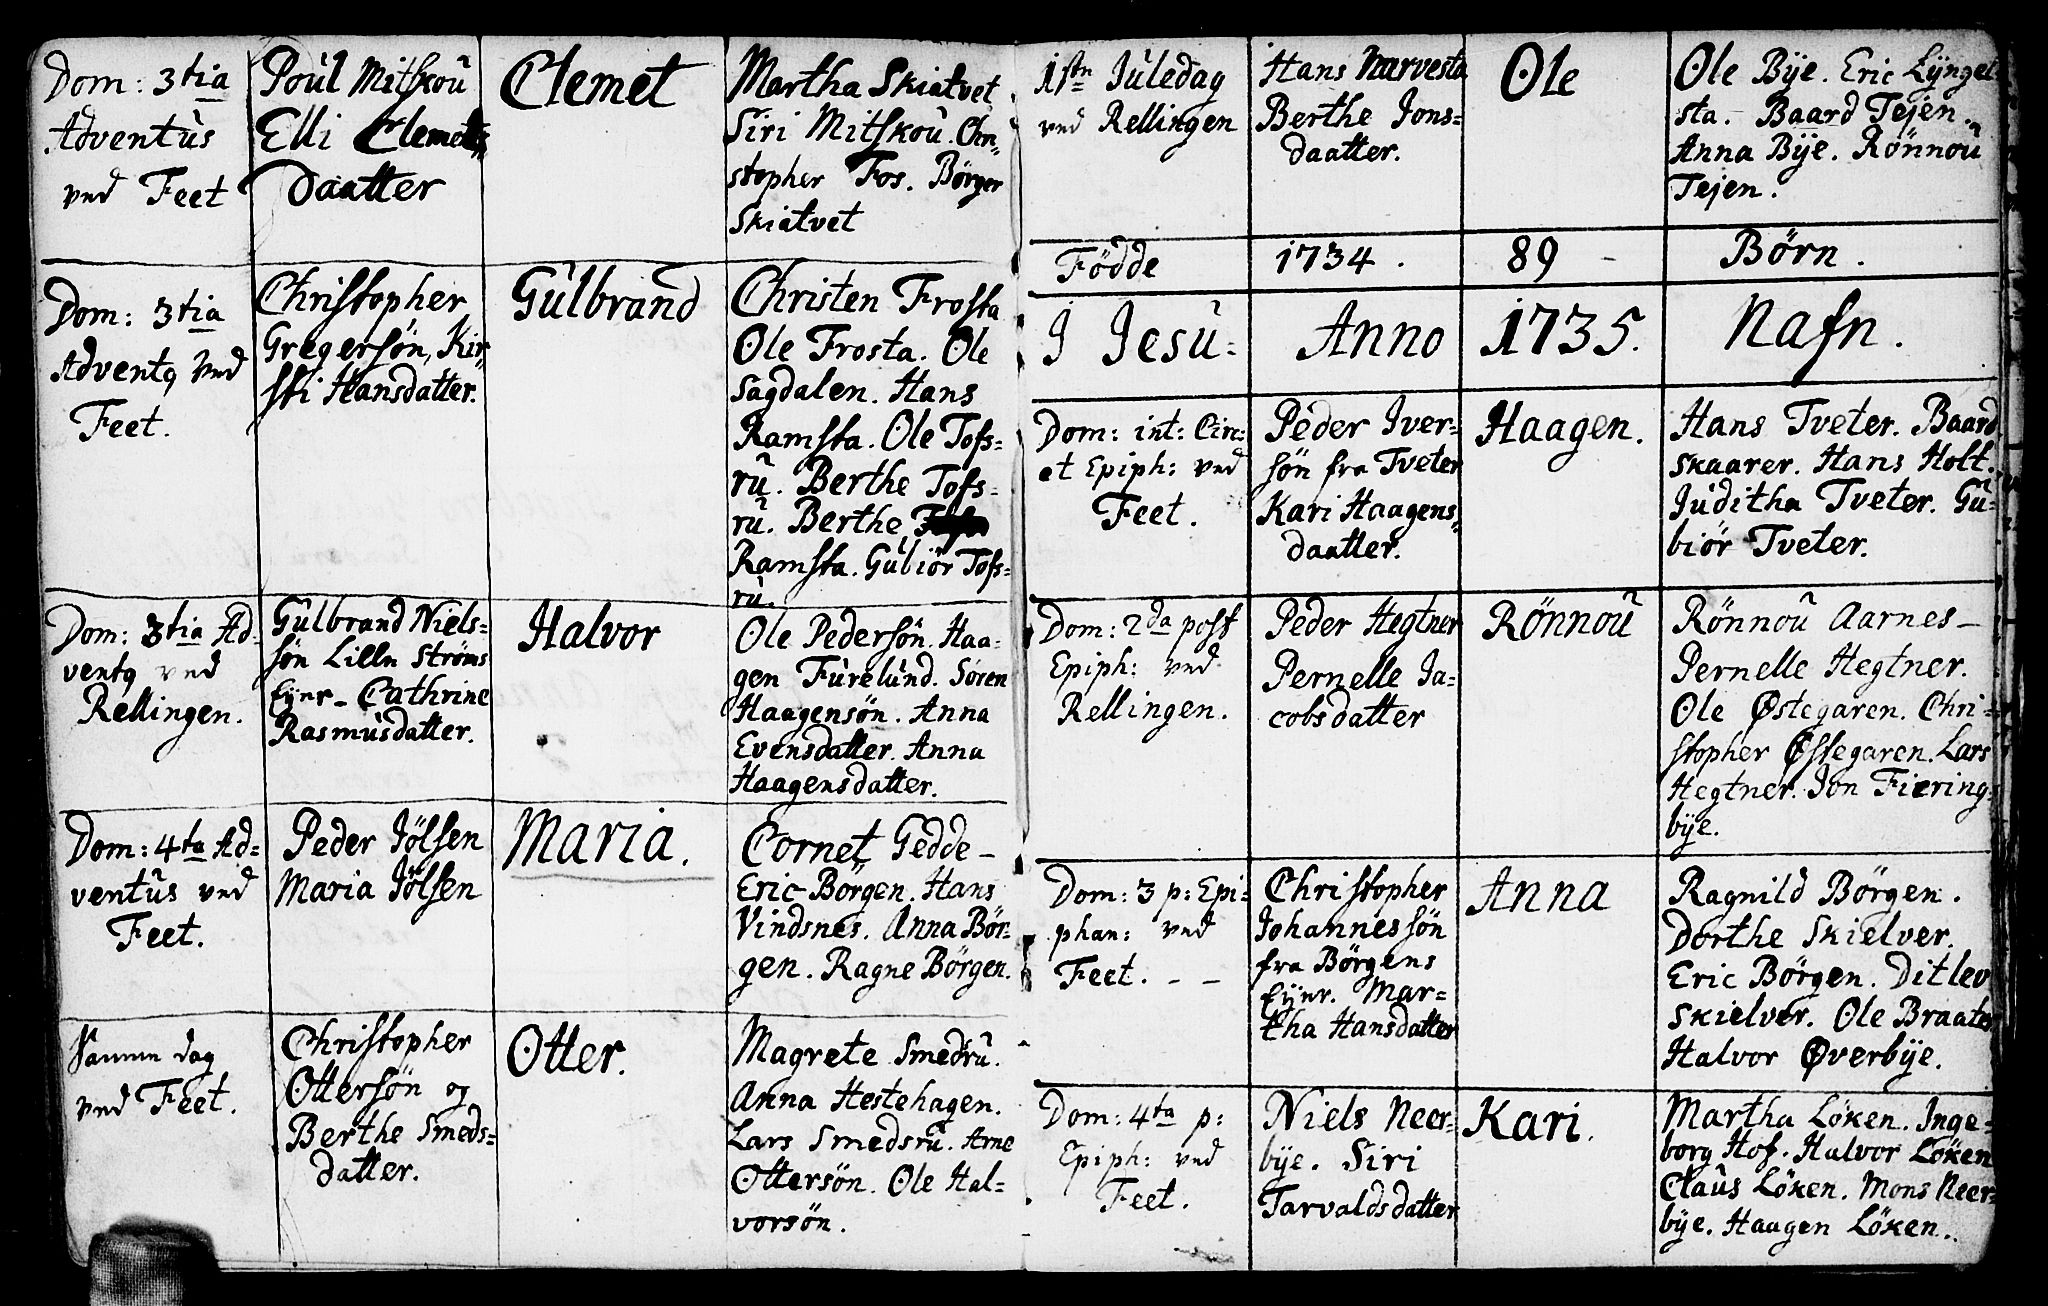 Dom: 3tia
Adventus
ved Feet
Poul Mitskou
Elli Clemets
Daatter
Clemet
Martha Skiatvet
Siri Mitskou. Chri-
stopher Fos. Börger
Skiatvet
Dom: 3tia
Adventq ved
Feet.
Christopher
Gregersön, Kir-
sti Hansdatter.
Gulbrand
Christen Frosta
Ole Frosta. Ole
Sagdalen. Hans
Ramsta. Ole Tofs-
ru. Berthe Tofs-
ru. Berthe
Ramsta. Gubiör Tofs-
ru.
Dom: 3tia Ad-
ventq ved
Rellingen.
Gulbrand Niels-
sön Lille Ströms
Eyer - Cathrine
Rasmusdatter.
Halvor
Ole Pedersön. Haa-
gen Furelund. Sören
Haagensön. Anna
Evensdatter. Anna
Haagensdatter.
Dom: 4ta Ad-
ventus ved
Feet.
Peder Jölsen
Maria Jölsen
Maria.
Cornet Gedde -
Eric Börgen. Hans
Vindsnes. Anna Bör-
gen. Ragne Börgen.
Samme dag
ved Feet.
Christopher
Ottersön og
Berthe Smeds-
datter.
Otter.
Magrete Smedsru.
Anna Hestehagen.
Lars Smedsru. Arne
Ottersön. Ole Hal-
vorsön.
1ste Juledag
ved Rellingen
Hans Narvesta
Berthe Jons-
daatter.
Ole
Ole Bÿe. Eric Lÿngel
sta. - Baard Tejen.
Anna Bÿe. Rönnou
Tejen.
Födde 1734. 89 - Börn.
J Jesu- Anno 1735. Nafn.
Dom: int: Circ:
et Epiph: ved
Feet.
Peder Iver-
sön fra Tveter
Kari Haagens-
daatter.
Haagen.
Hans Tveter. Baard
Skaarer. Hans Holt.
Juditha Tveter. Gu-
biör Tveter.
Dom: 2da post
Epiph: ved
Rellingen.
Peder Hegtner
Pernelle Ja-
cobsdatter
Rönnou
Rönnou Aarnes -
Pernelle Hegtner.
Ole Østegaren. Chri-
stopher Østegaren. Lars
Hegtner. Jon Fiering-
bÿe.
Dom: 3 p: Epi-
phan: ved
Feet. - -
Christopher
Johannessön
fra Börgens
Eÿer. Mar-
tha Hansdatter
Anna
Ragnild Börgen.
Dorthe Skielver.
Eric Börgen. Ditlev
Skielver. Ole Braaten
Halvor Øverbÿe.
Dom: 4ta p:
Epiph: ved
Feet.
Niels Neer-
bÿe. Siri
Tarvaldsdatter
Kari.
Martha Löken. Inge-
borg Hof. Halvor Löken
Claus Löken. Mons Neer-
bÿe. Haagen Löken.